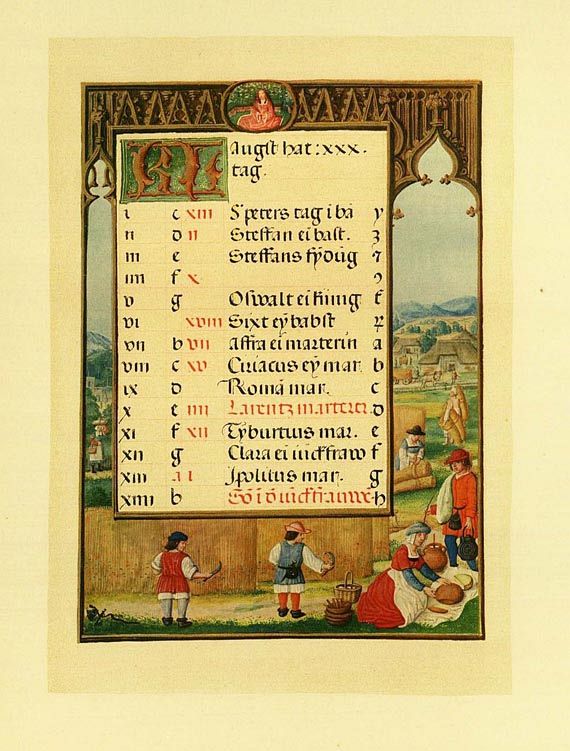 KL Augst hat : xxx .
tag .
i c xiii S peters tag i bā y
ii d ii Steffan ei bast . z
iii e Steffans fÿdūg
iiii f x
v g Oswalt ei küng
vi xviii Sixt eÿ babst
vii b vii Affra ei marterin a
viii c xv Ciriacus eÿ mar b
ix d Romā mar . c
x e iiii Larentz marterer d
xi f xii Tÿburtius mar . e
xii g Clara ei iückfraw f
xiii a i Ipolitus mar . g
xiiii b h